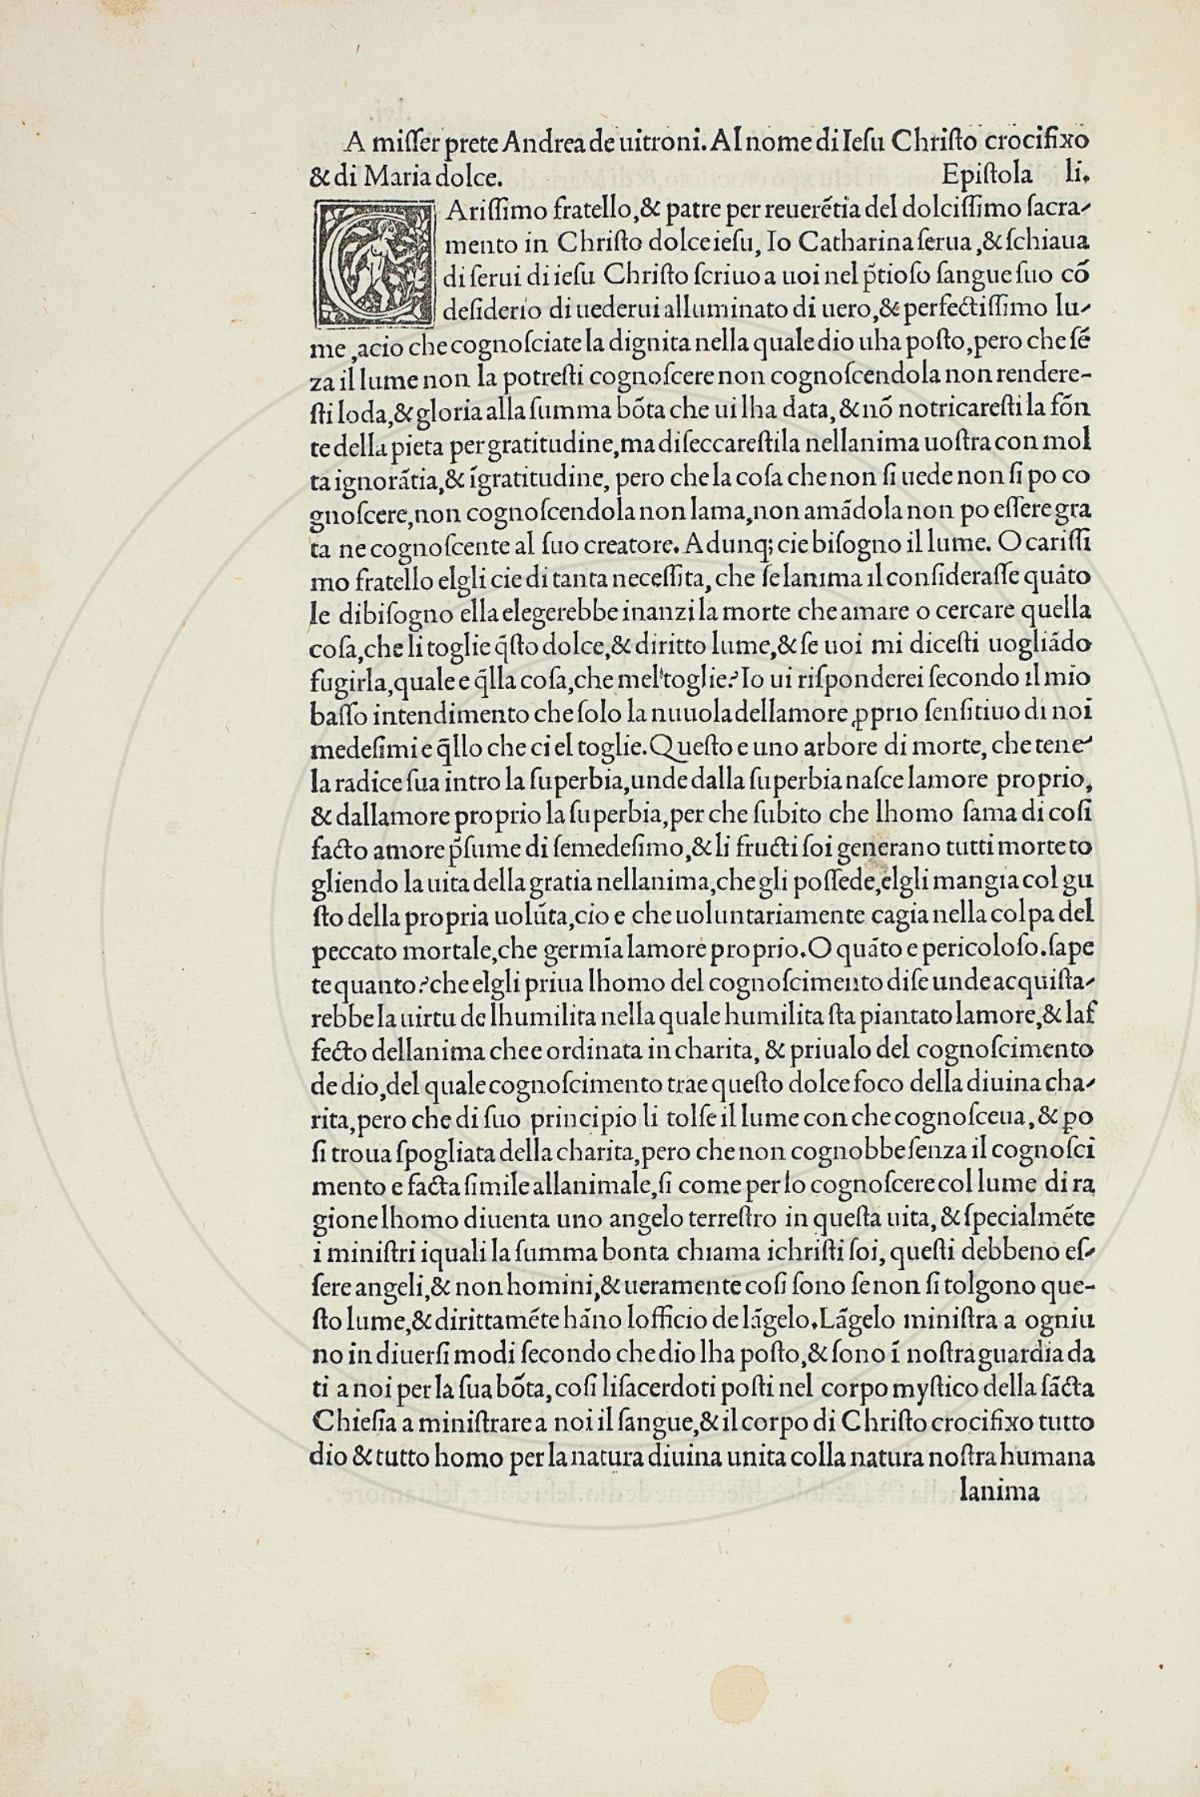 A miſſer prete Andrea de uitroni. Al nome di Ieſu Chriſto crocifixo
& di Maria dolce. Epiſtola li.
CAriſſimo fratello,& patre per reuerẽtia del dolciſſimo ſacra-
mento in Chriſto dolce ieſu, Io Catharina ſerua,& ſchiaua
di ſerui di ieſu Chriſto ſcriuo a uoi nel p̃tioſo ſangue ſuo cõ
deſiderio di uederui alluminato di uero,& perfectiſſimo lu-
me,acio che cognoſciate la dignita nella quale dio uha poſto,pero che ſẽ
za il lume non la potreſti cognoſcere non cognoſcendola non rendere-
ſti loda,& gloria alla ſumma bõta che ui lha data,& nõ notricareſti la fõn
te della pieta per gratitudine,ma diſeccareſtila nellanima uoſtra con mol
ta ignorãtia,& ĩgratitudine, pero che la coſa che non ſi uede non ſi po co
gnoſcere,non cognoſcendola non lama,non amãdola non po eſſere gra
ta ne cognoſcente al ſuo creatore. Adunq; cie biſogno il lume. O cariſſi
mo fratello elgli cie di tanta neceſſita, che ſe lanima il conſideraſſe quãto
le dibiſogno ella elegerebbe inanzi la morte che amare o cercare quella
coſa,che li toglie q̃ſto dolce,& diritto lume,& ſe uoi mi diceſti uogliãdo
fugirla,quale e q̃lla coſa,che mel toglie? Io ui riſponderei ſecondo il mio
baſſo intendimento che ſolo la nuuola dellamore ꝓprio ſenſitiuo di noi
medeſimi e q̃llo che ci el toglie. Queſto e uno arbore di morte, che tene
la radice ſua intro la ſuperbia,unde dalla ſuperbia naſce lamore proprio,
& dallamore proprio la ſuperbia,per che ſubito che lhomo ſama di coſi
facto amore p̃ſume di ſemedeſimo,& li fructi ſoi generano tutti morte to
gliendo la uita della gratia nellanima,che gli poſſede,elgli mangia col gu
ſto della propria uolũta,cio e che uoluntariamente cagia nella colpa del
peccato mortale,che germĩa lamore proprio. O quãto e pericoloſo.ſape
te quanto? che elgli priua lhomo del cognoſcimento diſe unde acquiſta-
rebbe la uirtu de lhumilita nella quale humilita ſta piantato lamore,& laf
fecto dellanima che e ordinata in charita, & priualo del cognoſcimento
de dio,del quale cognoſcimento trae queſto dolce foco della diuina cha-
rita,pero che di ſuo principio li tolſe il lume con che cognoſceua,& ꝑo
ſi troua ſpogliata della charita,pero che non cognobbe ſenza il cognoſci
mento e facta ſimile allanimale,ſi come per lo cognoſcere col lume di ra
gione lhomo diuenta uno angelo terreſtro in queſta uita, & ſpecialmẽte
i miniſtri iquali la ſumma bonta chiama ichriſti ſoi, queſti debbeno eſ-
ſere angeli,& non homini,& ueramente coſi ſono ſe non ſi tolgono que-
ſto lume,& dirittamẽte hãno lofficio de lãgelo. Lãgelo miniſtra a ogniu
no in diuerſi modi ſecondo che dio lha poſto,& ſono ĩ noſtra guardia da
ti a noi per la ſua bõta,coſi li ſacerdoti poſti nel corpo myſtico della ſãcta
Chieſia a miniſtrare a noi il ſangue,& il corpo di Chriſto crocifixo tutto
dio & tutto homo per la natura diuina unita colla natura noſtra humana
lanima